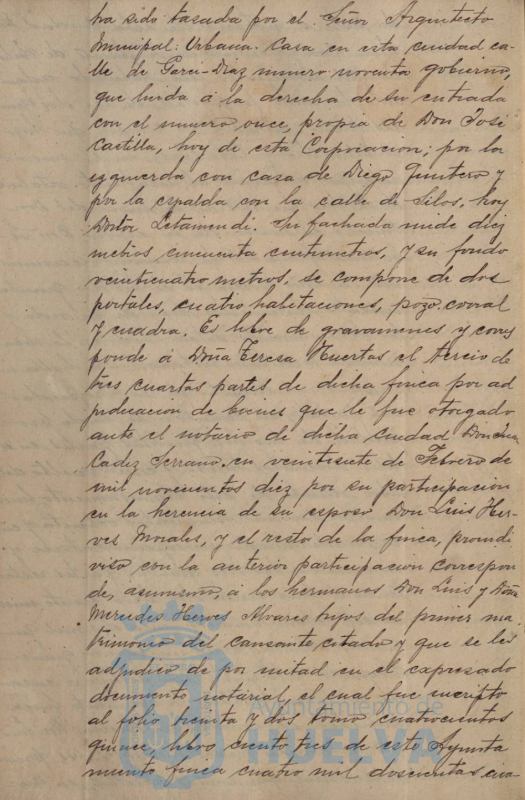 ha sido tasada por el Señor Arquitecto
Municipal: Urbana. Casa en esta ciudad ca-
lle de Garci-Diaz numero noventa gobierno,
que linda á la derecha de su entrada
con el numero once, propia de Don José
Castilla, hoy de esta Corporacion; por la
izquierda con casa de Diego Quintero y
por la espalda con la calle de Silos, hoy
Doctor Letamendi. Su fachada mide diez
metros cincuenta centimetros, y su fondo
veinticuatro metros, se compone de dos
portales, cuatro habitaciones, pozo, corral
y cuadra. Es libre de gravamenes y corres
ponde á Doña Teresa Huertas el tercio de
tres cuartas partes de dicha finca por ad
judicacion de bienes que le fue otorgado
ante el notario de dicha ciudad Don Juan
Cadiz Serrano en veintisiete de Febrero de
mil novecientos diez por su participacion
en la herencia de su esposo Don Luis Her-
ves Morales, y el resto de la finca, proindi
viso con la anterior participacion correspon
de, asimismo, á los hermanos Don Luis y Doña
Mercedes Herves Alvares hijos del primer ma
trimonio del causante citado y que se les
adjudicó de por mitad en el expresado
documento notarial, el cual fue inscrito
al folio treinta y dos tomo cuatrocientos
quince, libro ciento tres de este Ayunta
miento finca cuatro mil doscientas cua-
Ayuntamiento de
HUELVA